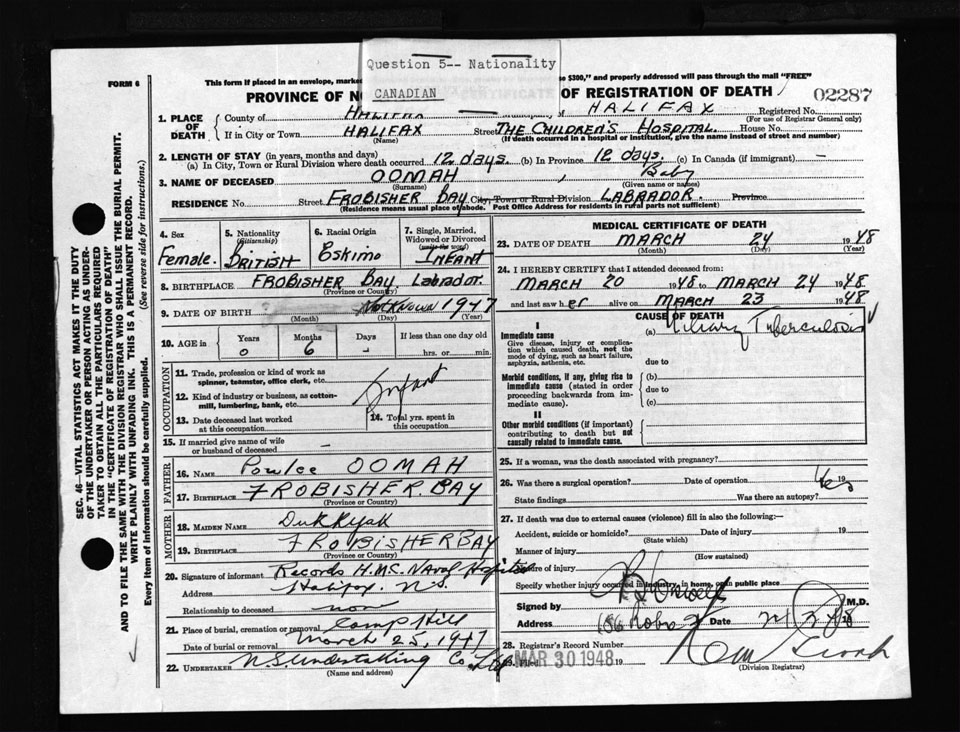 Question 5-- Nationality
CANADIAN
FORM 6
This form if placed in an envelope, marked $300," and properly addressed will pass through the mail "FREE"
PROVINCE OF NO OF REGISTRATION OF DEATH
02287
1. PLACE OF DEATH
County of HALIFAX HALIFAX Registered No.
(For use of Registrar General only)
If in City or Town HALIFAX Street THE CHILDREN'S HOSPITAL House No.
(Name) (If death occurred in a hospital or institution, give the name instead of street and number)
2. LENGTH OF STAY (in years, months and days)
(a) In City, Town or Rural Division where death occurred 12 days. (b) In Province 12 days. (c) In Canada (if immigrant) —
3. NAME OF DECEASED OOMAH, Baby
(Surname) (Given name or names)
RESIDENCE No. Street FROBISHER BAY City, Town or Rural Division LABRADOR. Province
(Residence means usual place of abode. Post Office Address for residents in rural parts not sufficient)
4. Sex
Female.
5. Nationality
(Citizenship)
BRITISH
6. Racial Origin
Eskimo
7. Single, Married,
Widowed or Divorced
(write the word)
INFANT
8. BIRTHPLACE FROBISHER BAY Labrador.
(Province or Country)
9. DATE OF BIRTH Not Known 1947
(Month) (Day) (Year)
10. AGE in
Years Months Days If less than one day old
0 6 - hrs. or min.
OCCUPATION
11. Trade, profession or kind of work as
spinner, teamster, office clerk, etc.
Infant
12. Kind of industry or business, as cotton-
mill, lumbering, bank, etc.
13. Date deceased last worked
at this occupation
14. Total yrs. spent in
this occupation
15. If married give name of wife
or husband of deceased –
FATHER
16. NAME OOMAH
17. BIRTHPLACE FROBISHER BAY
(Province or Country)
MOTHER
18. MAIDEN NAME
19. BIRTHPLACE FROBISHER BAY
(Province or Country)
20. Signature of informant Records H.M.C. Naval Hospital
Address Halifax, N.S.
Relationship to deceased non
21. Place of burial, cremation or removal Camp Hill
Date of burial or removal March 25, 1947
22. UNDERTAKER N.S. Undertaking Co. Ltd
(Name and address)
MEDICAL CERTIFICATE OF DEATH
23. DATE OF DEATH MARCH 24 1948
(Month) (Day) (Year)
24. I HEREBY CERTIFY that I attended deceased from:
MARCH 20 1948 to MARCH 24 1948
and last saw her alive on MARCH 23 1948
CAUSE OF DEATH
I
Immediate cause
Give disease, injury or complica-
tion which caused death, not the
mode of dying, such as heart failure,
asphyxia, asthenia, etc.
(a) Miliary Tuberculosis
due to
Morbid conditions, if any, giving rise to
immediate cause (stated in order
proceeding backwards from im-
mediate cause).
(b)
due to
(c)
II
Other morbid conditions (if important)
contributing to death but not
causally related to immediate cause.
25. If a woman, was the death associated with pregnancy?
26. Was there a surgical operation? Date of operation 19
State findings Was there an autopsy? Yes
27. If death was due to external causes (violence) fill in also the following:—
Accident, suicide or homicide? Date of injury 19
(State which)
Manner of injury
(How sustained)
Nature of injury
Specify whether injury occurred in industry, in home, or in public place
Signed by M.D.
Address Date
28. Registrar's Record Number
29. Filed MAR 30 1948 19
(Division Registrar)
SEC. 46—VITAL STATISTICS ACT MAKES IT THE DUTY
OF THE UNDERTAKER OR PERSON ACTING AS UNDER-
TAKER TO OBTAIN ALL THE PARTICULARS REQUIRED
IN THE "CERTIFICATE OF REGISTRATION OF DEATH"
AND TO FILE THE SAME WITH THE DIVISION REGISTRAR WHO SHALL ISSUE THE BURIAL PERMIT.
WRITE PLAINLY WITH UNFADING INK. THIS IS A PERMANENT RECORD.
Every item of information should be carefully supplied. (See reverse side for instructions.)